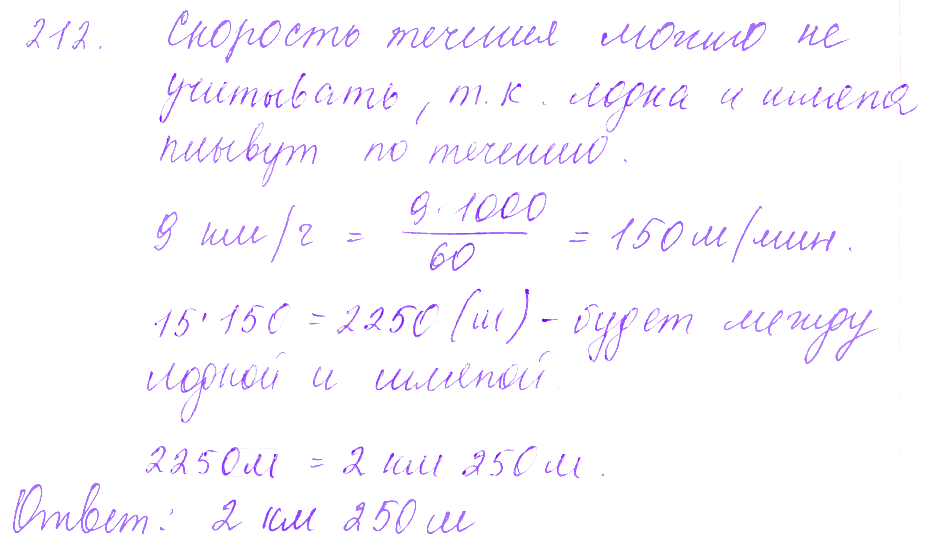 212. Скорость течения можно не
учитывать, т.к. лодка и шляпа
плывут по течению.
9 км/ч = 9·1000/60 = 150 м/мин.
15·150 = 2250 (м) - будет между
лодкой и шляпой.
2250 м = 2 км 250 м.
Ответ: 2 км 250 м